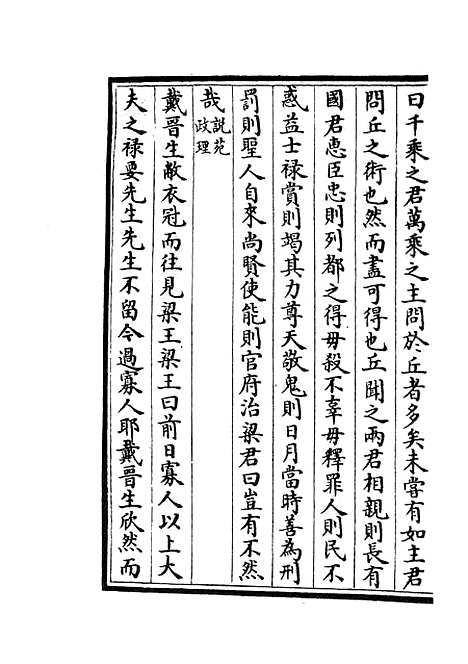 曰千乘之君萬乘之主問於丘者多矣未嘗有如主君
問丘之術也然而盡可得也丘聞之兩君相親則長有
國君惠臣忠則列都之得毋殺不辜毋釋罪人則民不
惑益士禄賞則竭其力尊天敬鬼則日月當時善為刑
罰則聖人自來尚賢使能則官府治梁君曰豈有不然
哉說苑政理
戴晉生敝衣冠而往見梁王梁王曰前日寡人以上大
夫之禄要先生先生不留今過寡人耶戴晉生欣然而